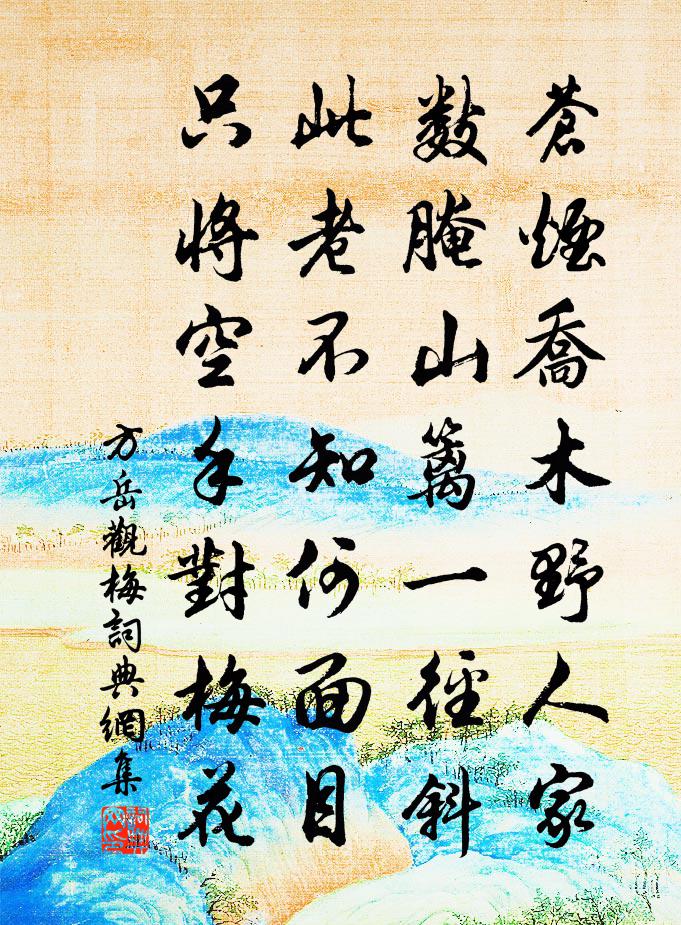 蒼煙喬木野人家
數腌山篱一徑斜
此老不知何面目
只將空手對梅花
方岳觀梅詞典網集